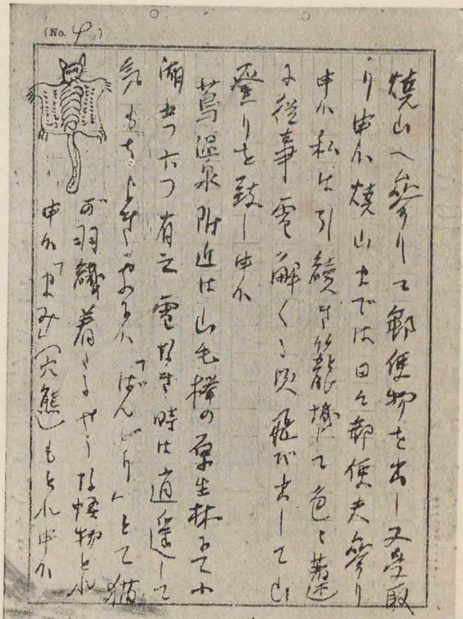 (No. 9)
燒山へ參りて郵便物を出し又受取
り申候燒山までは日々郵便夫參り
申候私は引續き籠城にて色々著述
に從事雪解くる頃飛び出して山
登りを致し申候
蔦温泉附近は山毛欅の原生林にて小
湖五つ六つ有之雪なき時は逍遙して
氣もち
「ばんどり」とて猫
が羽織着たるやうな怪物とれ
申候「まみ」穴熊もとれ申候